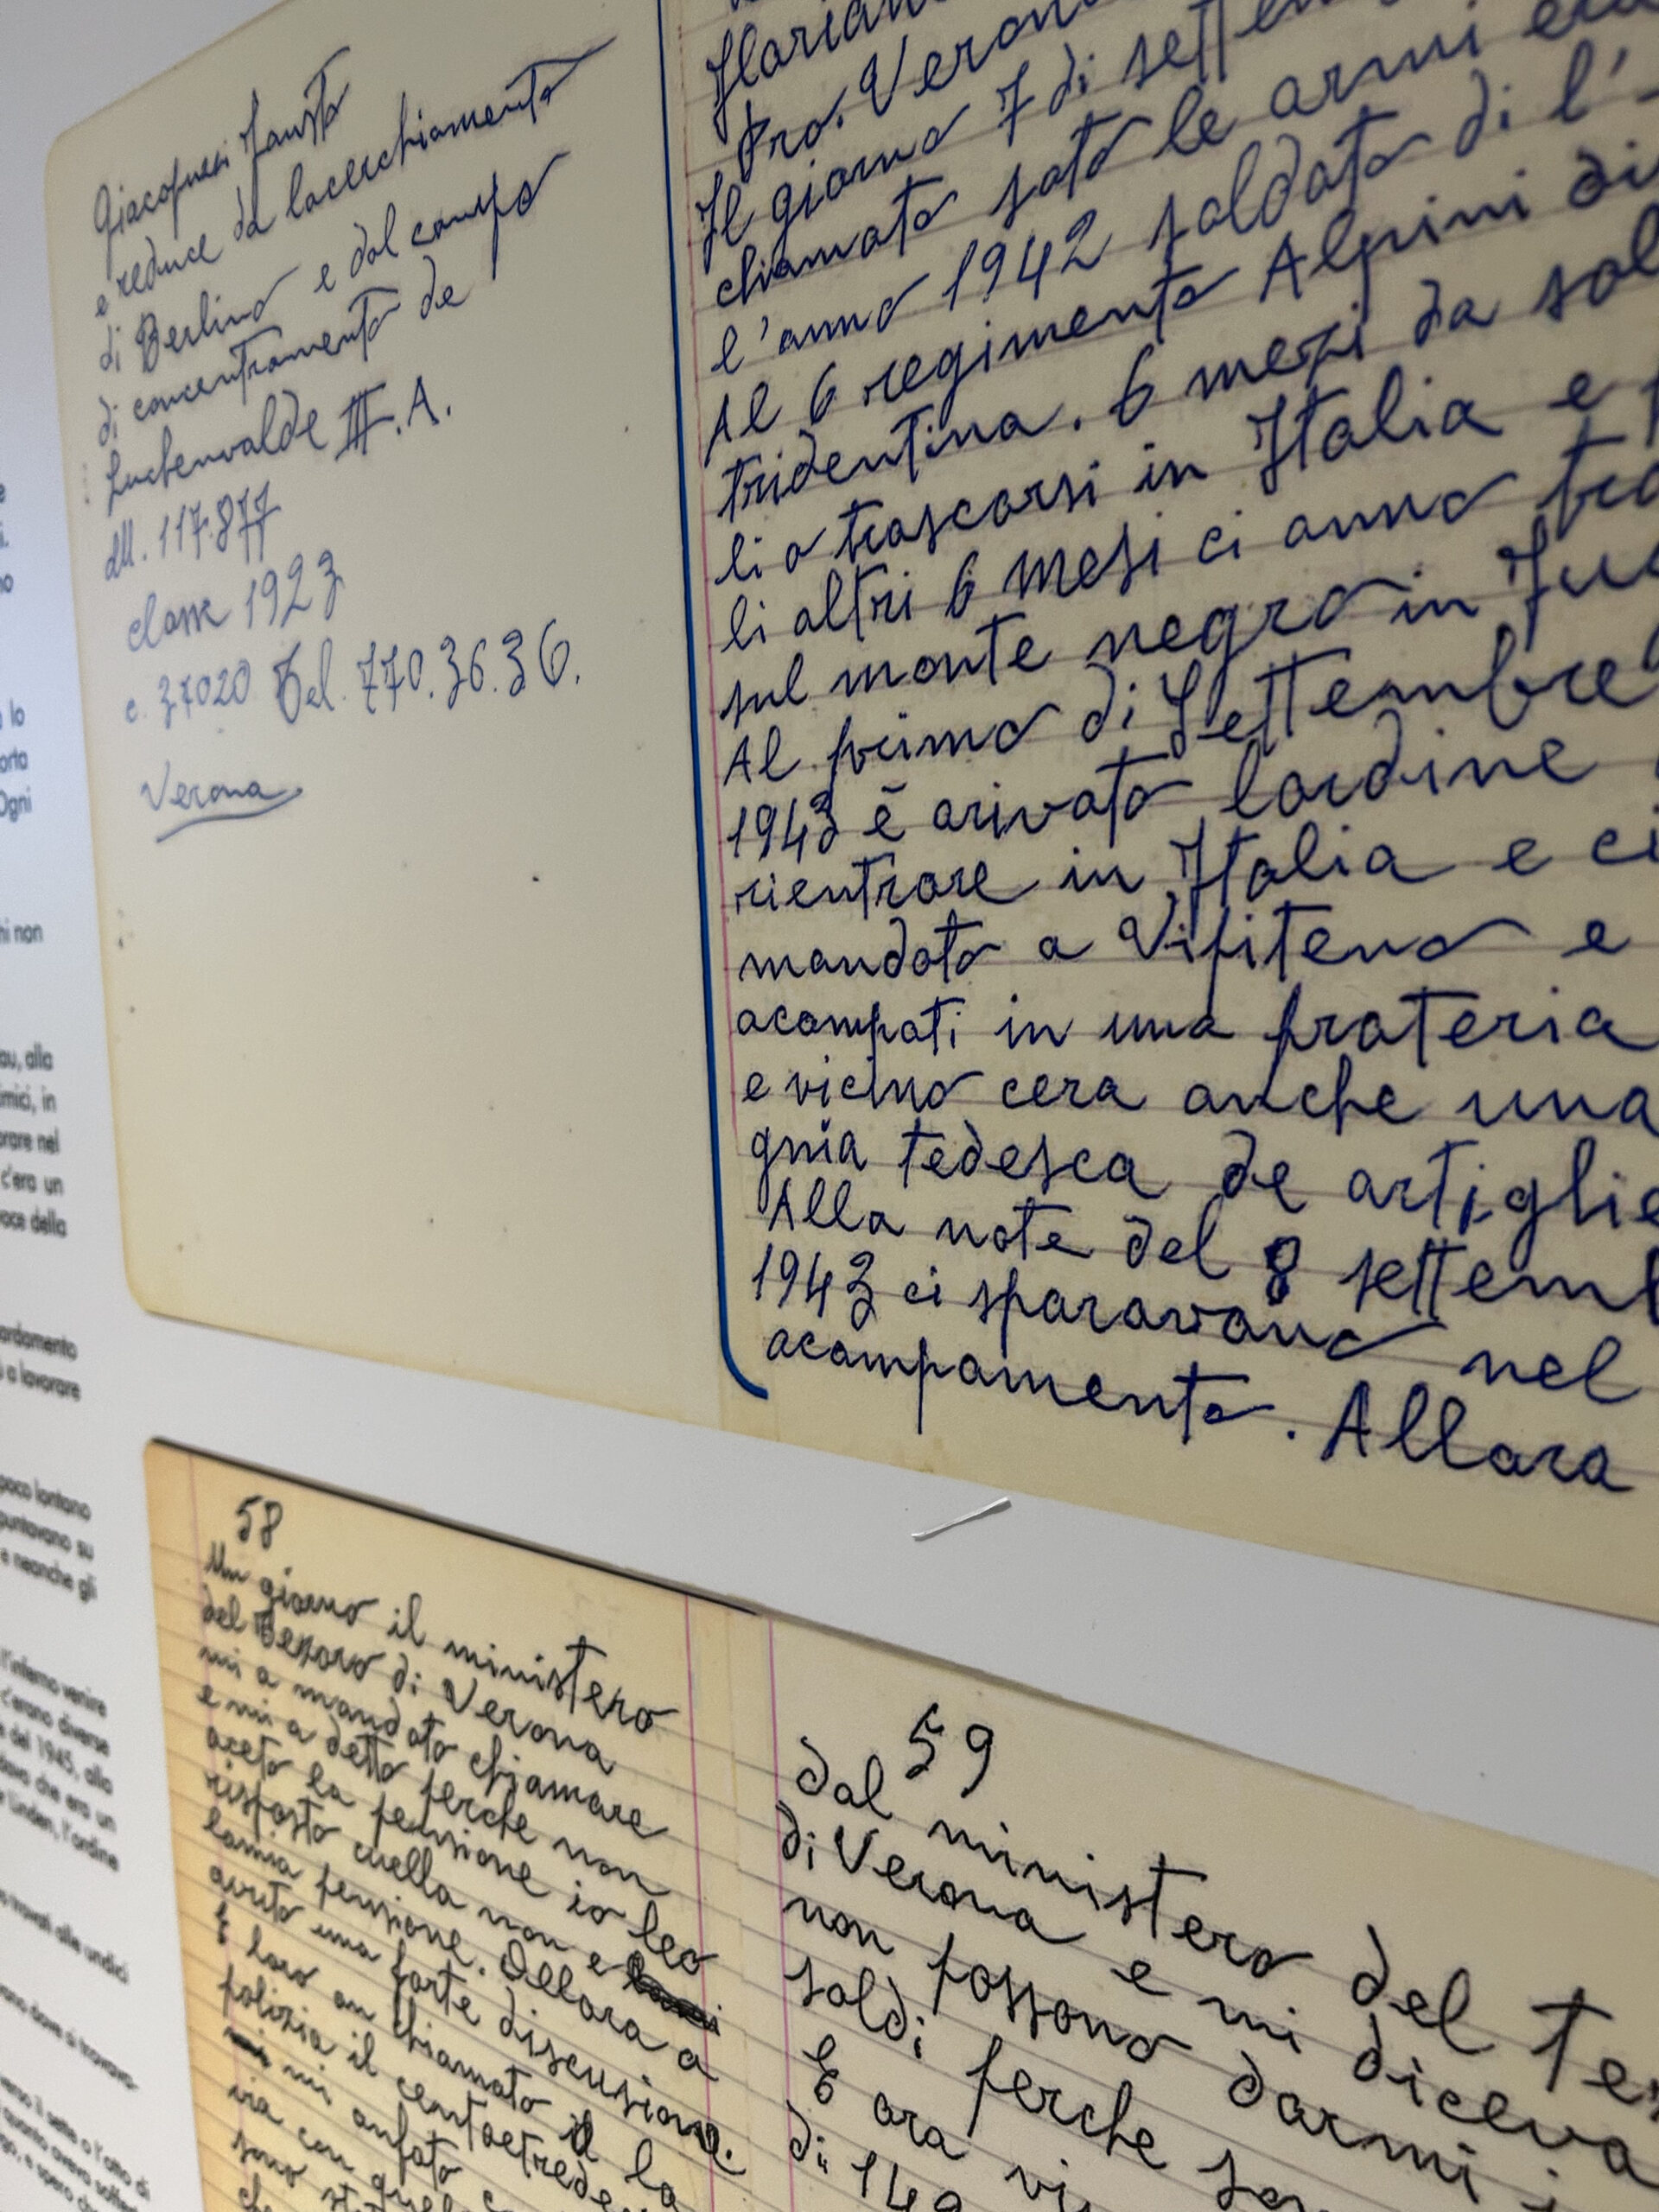 Giacopuzzi Fausto
e reduce da lacerchiamento
di Berlino e dal campo
di concentramento de
Luchenvalde III. A.
M. 117.877
classe 1923
c. 37020 Tel. 770.36.36.
Verona
Pro. Verona
Il giorno 7 di settem
chiamato soto le armi
l'anno 1942 soldato di l'
Al 6 regimento Alpini di
tridentina. 6 mesi da sol
li o trascorsi in Italia e
li altri 6 mesi ci anno tra
sul monte negro in Jug
Al primo di Settembre
1943 è arivato lordine
rientrare in Italia e ci
mandato a Vipiteno e
acampati in una prateria
e vicino cera anche una
gnia tedesca de artiglie
Alla note del 8 settemb
1943 ci sparavano nel
acampamento. Allara
58
Un giorno il ministero
del Tesoro di Verona
mi a mandato chiamare
e mi a detto perche non
aceto la pensione io leo
risposto cuella non e
lamia pensione. Allara a
avuto una forte discusione.
E loro an chiamato il la
polizia il centoetrede
mi anfato
via con quel
sono
che
59
dal ministero del tes
di Verona e mi diceva
non possono darmi i
soldi perche son
E ora vi
di 149
lo
orta
Ogni
ni non
au, alla
imici, in
orare nel
c'era un
voce della
ardamento
a lavorare
poco lontano
puntavano su
e neanche gli
l'inferno venire
c'erano diverse
del 1945, alla
davo che era un
Linden, l'ordine
trovati alle undici
verso il sette o l'otto di